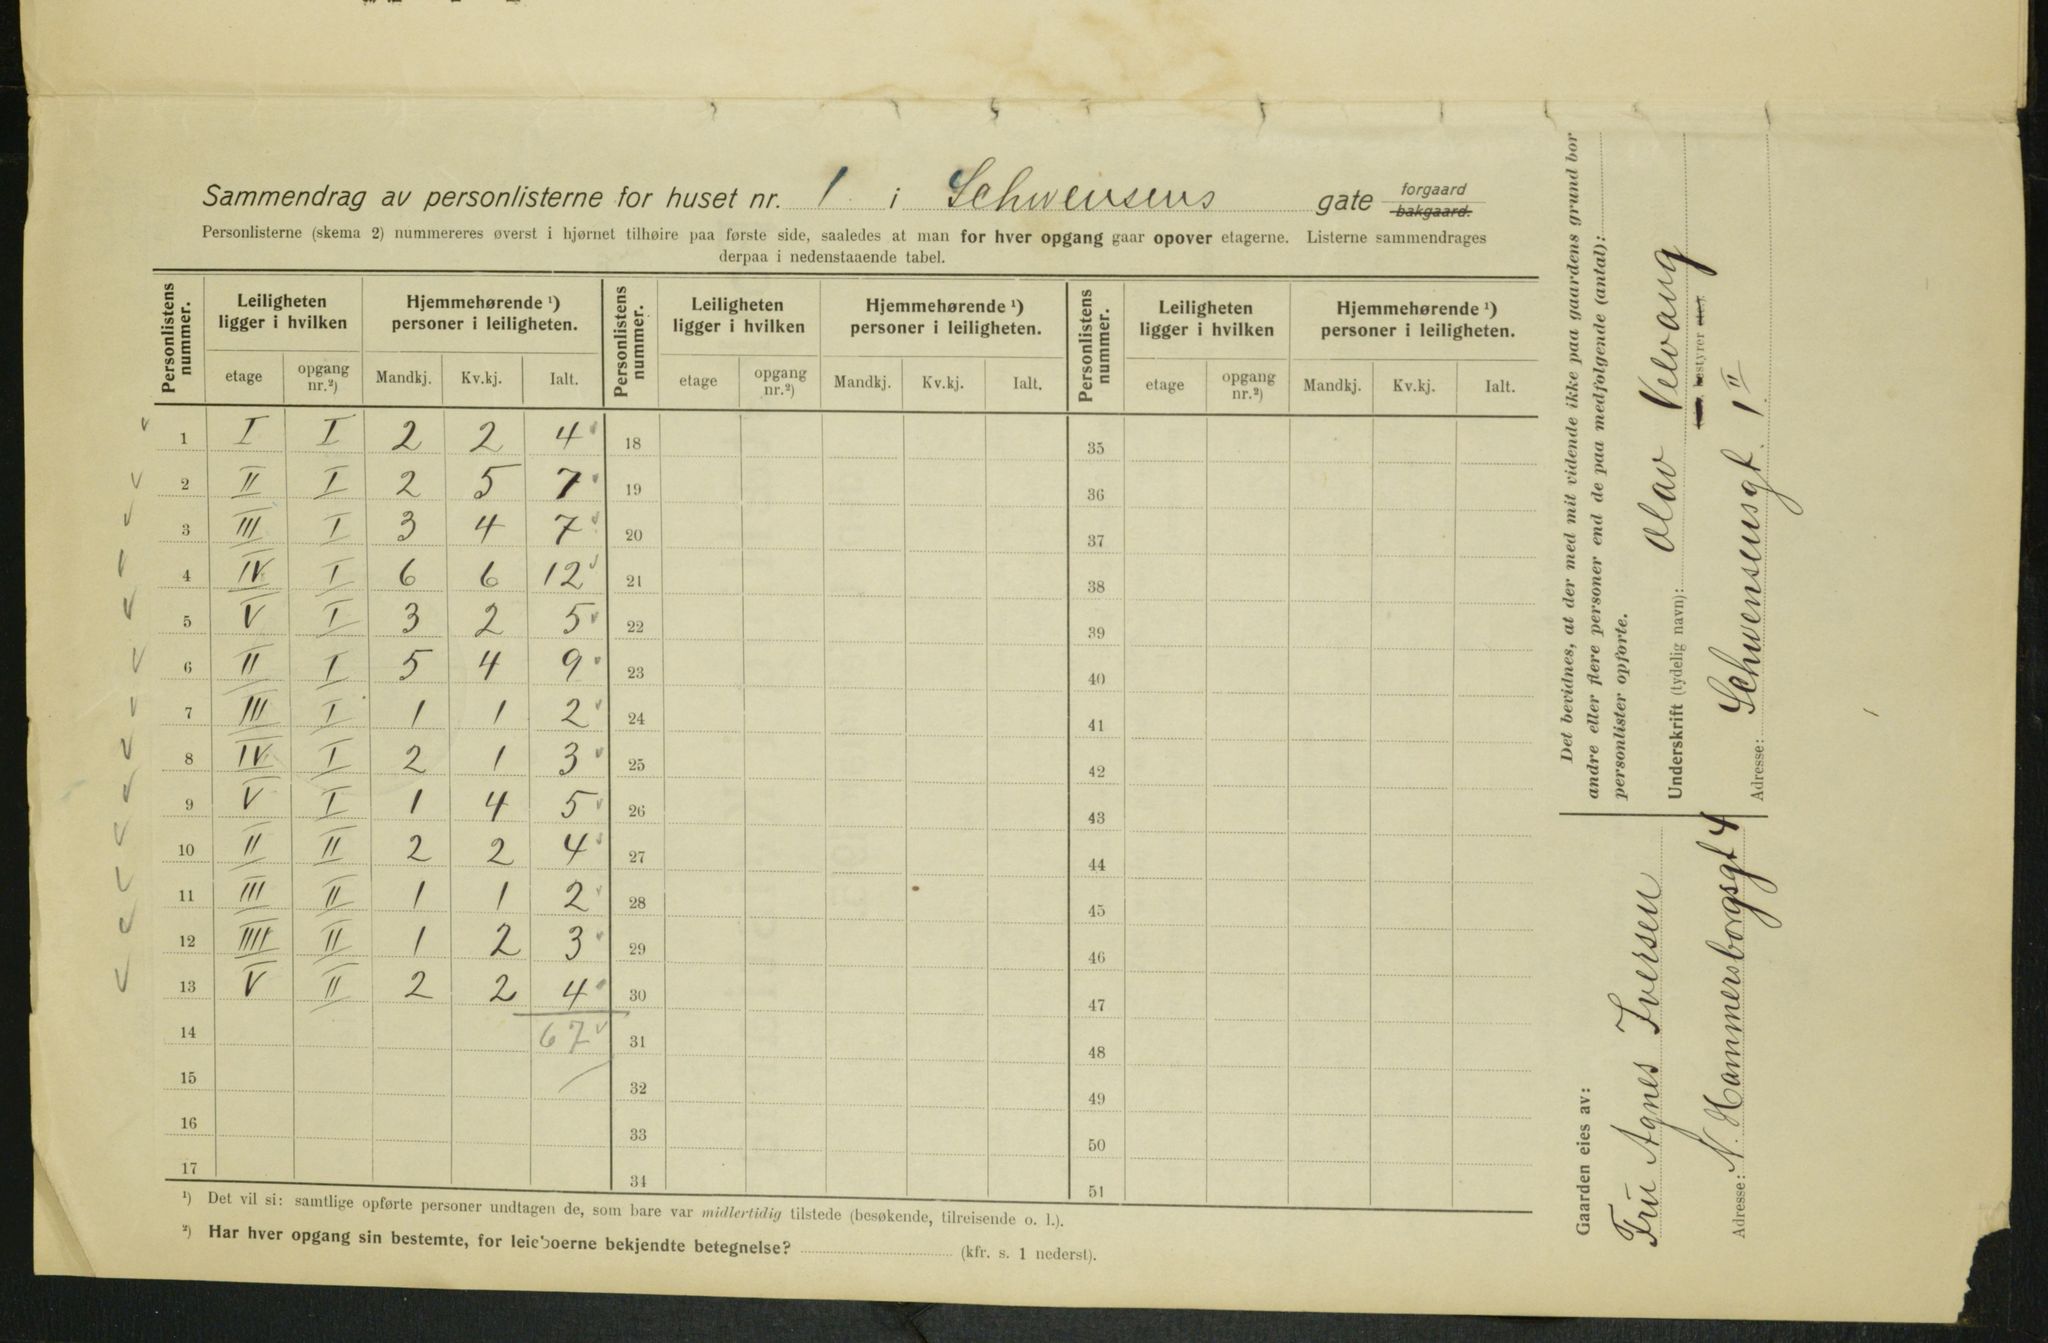 Sammendrag av personlisterne for huset nr. 1 i Schwensens gate forgaard bakgaard.
Personlisterne (skema 2) nummereres øverst i hjørnet tilhøire paa første side, saaledes at man for hver opgang gaar opover etagerne. Listerne sammendrages
derpaa i nedenstaaende tabel.
Personlistens nummer. Leiligheten ligger i hvilken Hjemmehørende ¹) personer i leiligheten. Personlistens nummer. Leiligheten ligger i hvilken Hjemmehørende ¹) personer i leiligheten. Personlistens nummer. Leiligheten ligger i hvilken Hjemmehørende ¹) personer i leiligheten.
etage opgang nr.²) Mandkj. Kv.kj. Ialt. etage opgang nr.²) Mandkj. Kv.kj. Ialt. etage opgang nr.²) Mandkj. Kv.kj. Ialt.
1 I I 2 2 4 18 35
2 II I 2 5 7 19 36
3 III I 3 4 7 20 37
4 IV I 6 6 12 21 38
5 V I 3 2 5 22 39
6 II I 5 4 9 23 40
7 III I 1 1 2 24 41
8 IV I 2 1 3 25 42
9 V I 1 4 5 26 43
10 II II 2 2 4 27 44
11 III II 1 1 2 28 45
12 IIII II 1 2 3 29 46
13 V II 2 2 4 30 47
14 67 31 48
15 32 49
16 33 50
17 34 51
¹) Det vil si: samtlige opførte personer undtagen de, som bare var midlertidig tilstede (besøkende, tilreisende o. l.).
²) Har hver opgang sin bestemte, for leieboerne bekjendte betegnelse? (kfr. s. 1 nederst).
Det bevidnes, at der med mit vidende ikke paa gaardens grund bor
andre eller flere personer end de paa medfølgende (antal):
personlister opførte.
Underskrift (tydelig navn): Olav Velvang
bestyrer
Adresse: Schwensensgt. 1 II
Gaarden eies av:
Fru Agnes Iversen
Adresse: N. Hammersborgsgt 4